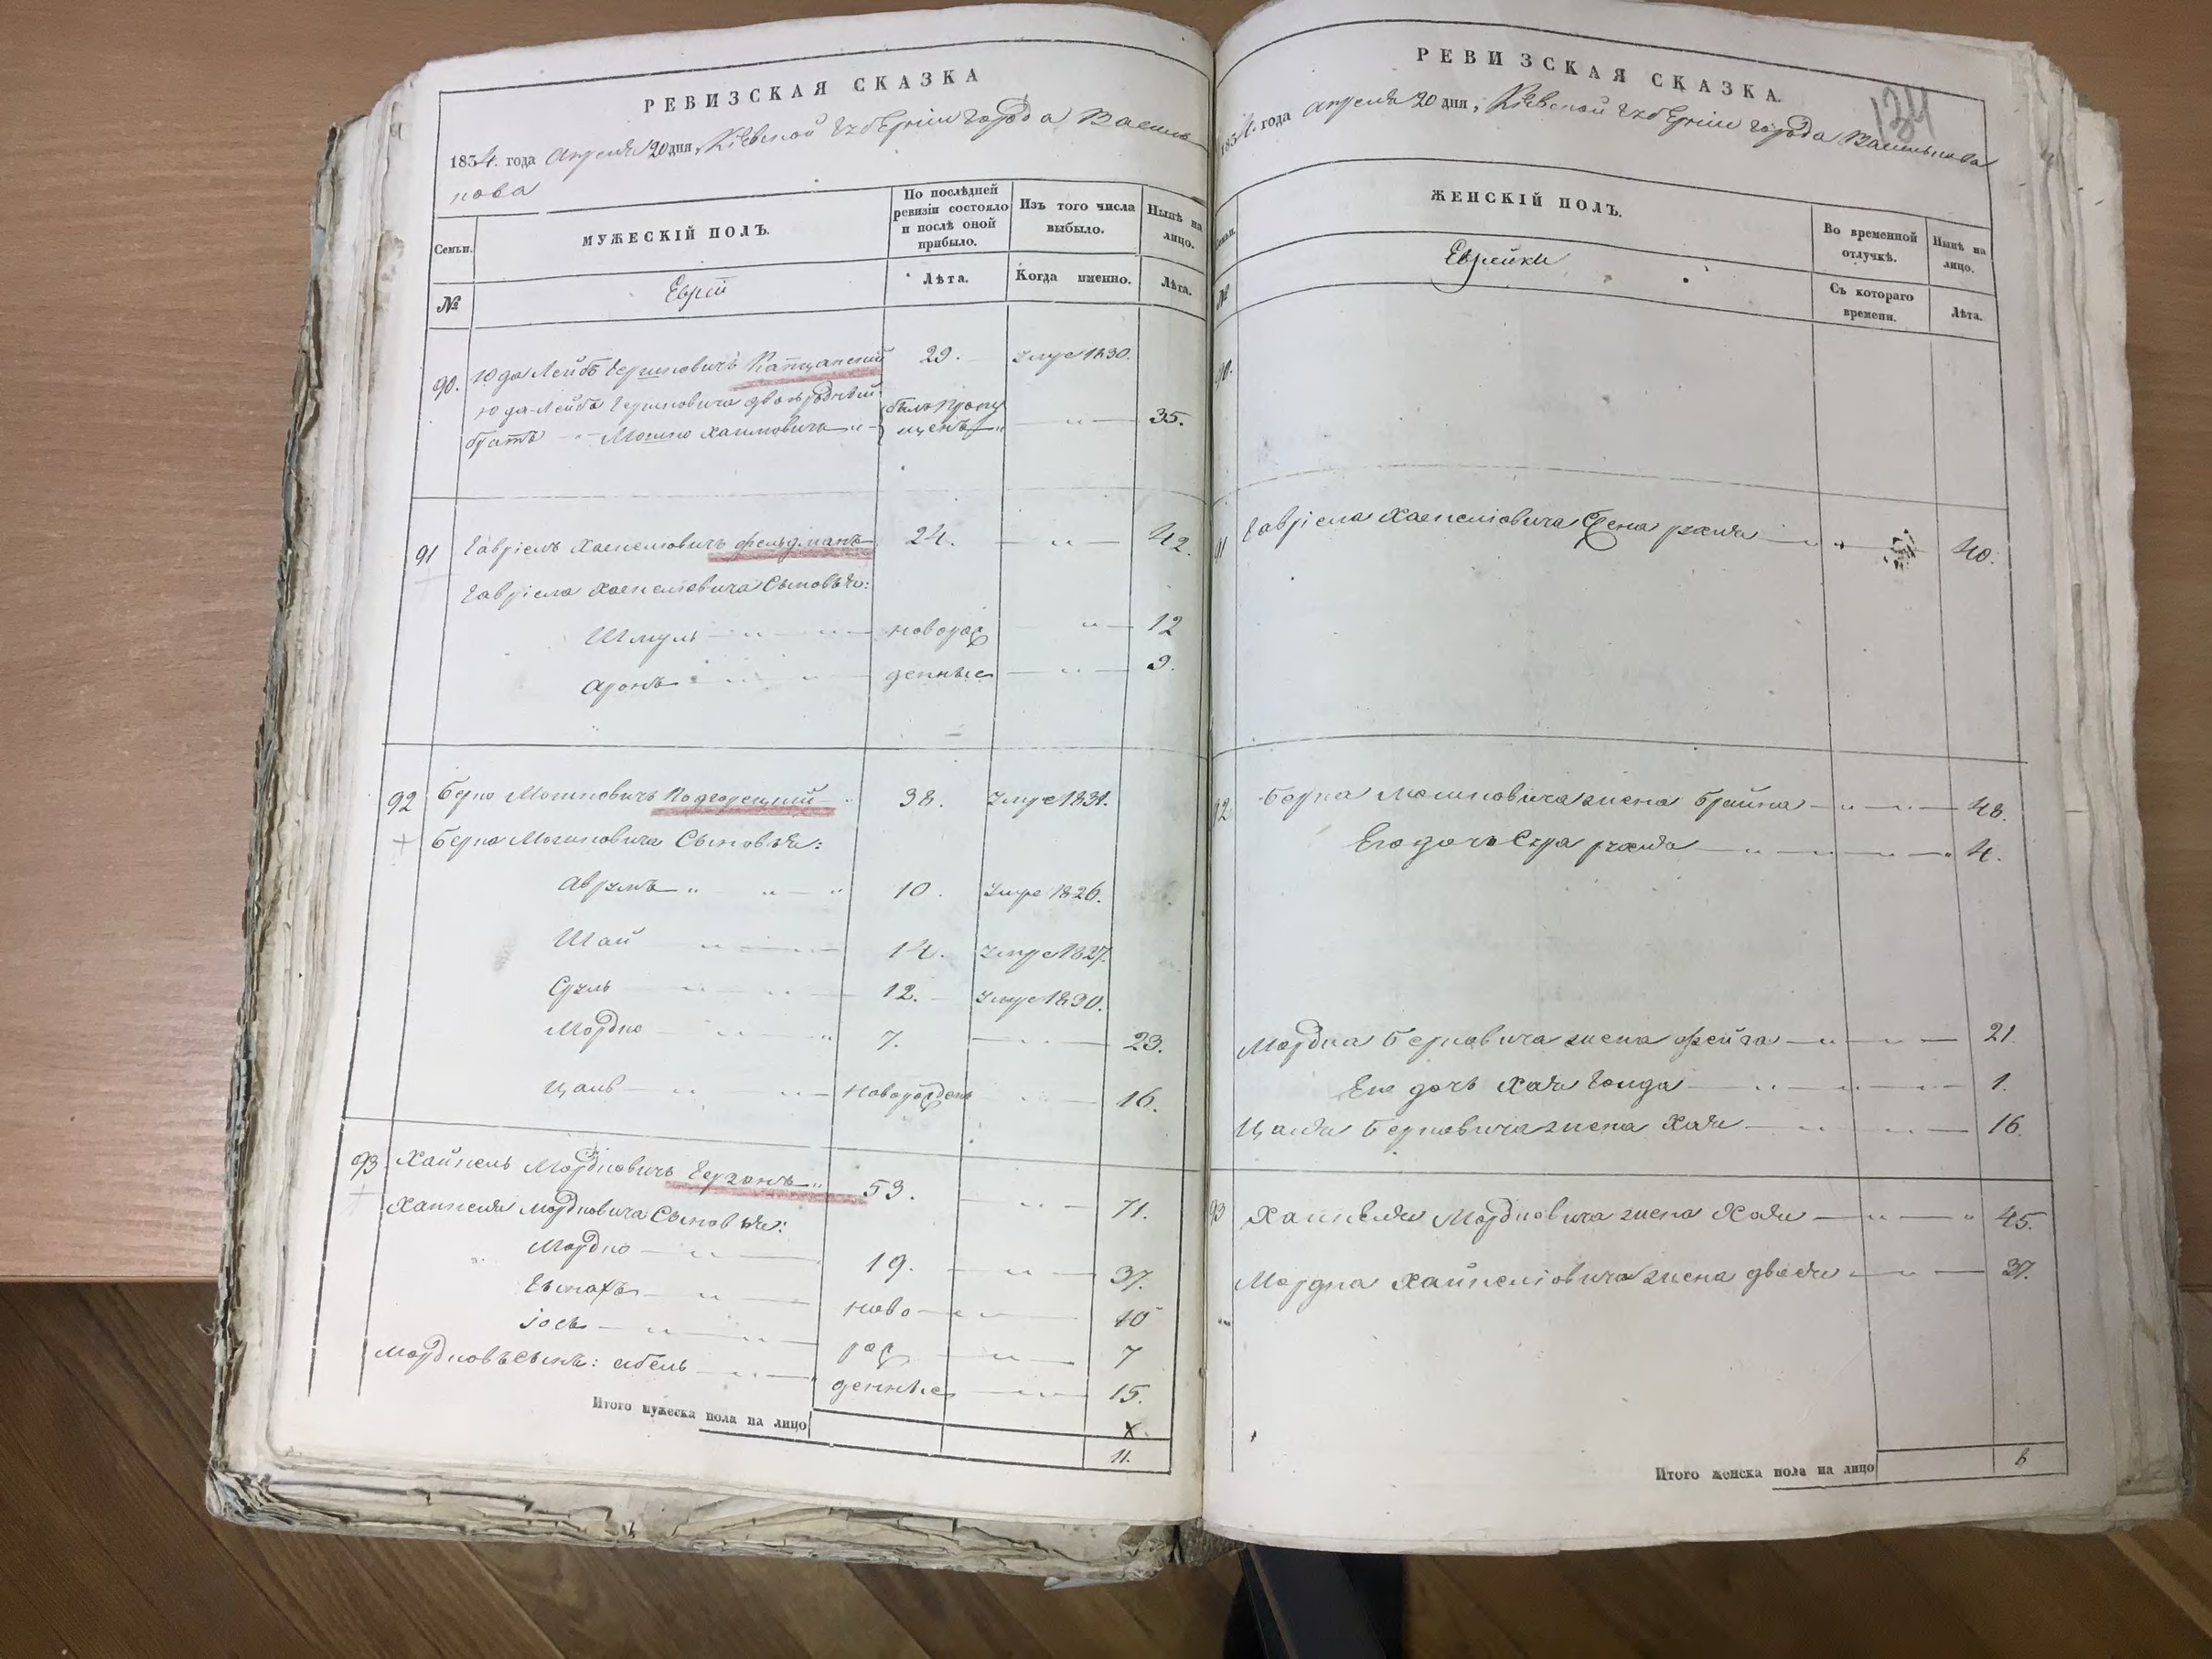 РЕВИЗСКАЯ СКАЗКА
1834. года Апреля 20 дня, Кіевской Губерніи города Василь
кова
Семьи.
МУЖЕСКІЙ ПОЛЪ.
По послѣдней ревизіи состояло и послѣ оной прибыло.
Изъ того числа выбыло.
Нынѣ на лицо.
№
Евреи
Лѣта.
Когда именно.
Лѣта.
90. Юда Лейбъ Гершковичъ 29. Умре 1830.
Юда-Лейбы Гершковича двоюродный
братъ Мошко Хаимовичъ былъ пропущенъ 35.
91 Гавріель Хаскелiовичъ Фельдманъ 24. 42.
Гавріела Хаскелiовича Сыновья:
Шмуль новорож 12
Аронъ денные 9.
92 Берко Мошковичъ Подгорецкий 38. Умре 1831.
Берка Мошковича Сыновья:
Аврумъ 10. Умре 1826.
Шай 14. Умре 1827.
Сруль 12. Умре 1830.
Мордко 7. 23.
Цаль Новорожден 16.
93 Хайкель Мордковичъ Герзонъ 53. 71.
Хайкеля Мордковича Сыновья:
Мордко 19. 37.
ново 10
Іось рож 7
Мордковъ сынъ: Лбель денные 15.
Х
Итого мужеска пола на лицо 11.
РЕВИЗСКАЯ СКАЗКА.
134
1834. года Апреля 20 дня, Кіевской Губерніи города Василькова
Семьи.
ЖЕНСКІЙ ПОЛЪ.
Во временной отлучкѣ.
Нынѣ на лицо.
№
Еврейки
Съ котораго времени.
Лѣта.
90.
91 Гавріела Хаскелiовича жена Рухля 40.
92 Берка Мошковича жена Брайна 48.
Его дочь Сура Рухля 4.
Мордка Берковича жена Фейга 21.
Его дочь Хая Голда 1.
Цаля Берковича жена Хая 16.
93 Хайкеля Мордковича жена Хая 45.
Мордка Хайкелiовича жена Двося 37.
Итого женска пола на лицо 8